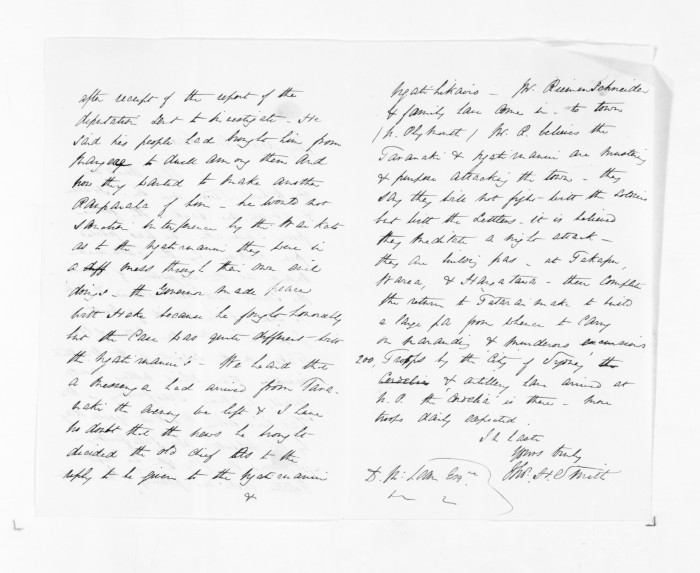 after receipt of the report of the
deputation sent to investigate - He
said his people had brought him from
to dwell among them and
now they wanted to make another
Rauparaha of him - he would not
sanction interference by the Waikato
as to the Ngatimaniu they were in
a mess through their own evil
doings - the Governor made peace
with Heke because he fought honorably
but the case was quite different with
the Ngatimaniu's - We heard that
a messenger had arrived from Tara-
naki the evening we left & I have
no doubt that the news he brought
decided the old chief as to the
reply to be given to the Ngatimaniu
&
Ngatihikairo - Mr. Riemenschneider
& family have come in to town
(N. Plymouth) Mr. R. believes the
Taranaki & Ngatimaniu are mustering
& purpose attacking the town - they
say they will not fight with the soldiers
but with the settlers - it is believed
they meditate a night attack -
they are building pas - at Takapu,
Warea, & - then complete
the return to Tataraimaka to build
a large pa from whence to carry
on marauding & murderous excursions
200 Troops by the City of Sydney the
Cordelia & artillery have arrived at
N. P. the Cordelia is there - more
troops daily expected
In haste
Yours truly
Jno. H. Smith
D. McLean Esqre